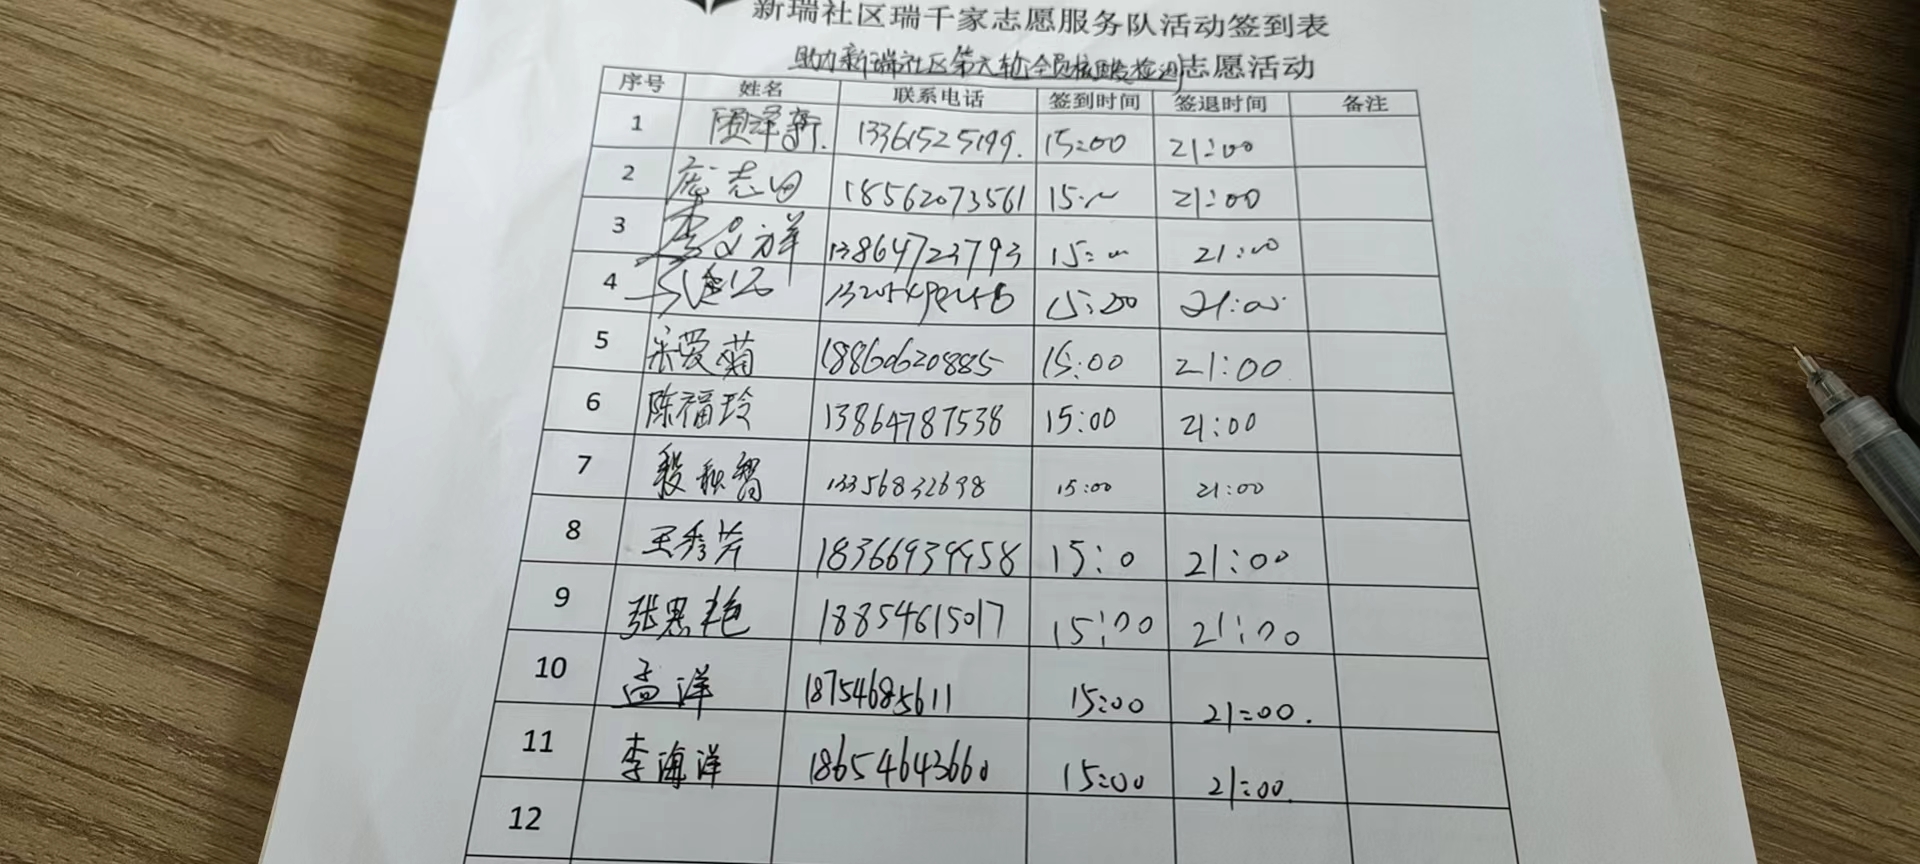 新瑞社区瑞千家志愿服务队活动签到表
助力新瑞社区第六轮全员核酸检测志愿活动
序号 姓名 联系电话 签到时间 签退时间 备注
1 周泽新. 13361525199. 15:00 21:00
2 庞志田 18562073561 15:~ 21:00
3 李文祥 13864723793 15:00 21:00
4 15:00 21:00
5 宋爱菊 18860620885 15:00 21:00
6 陈福玲 13864787538 15:00 21:00
7 13356832698 15:00 21:00
8 王秀芳 18366939958 15:0 21:00
9 张思艳 18854615017 15:00 21:00
10 孟洋 18754685611 15:00 21:00.
11 李海洋 18654643660 15:00 21:00.
12